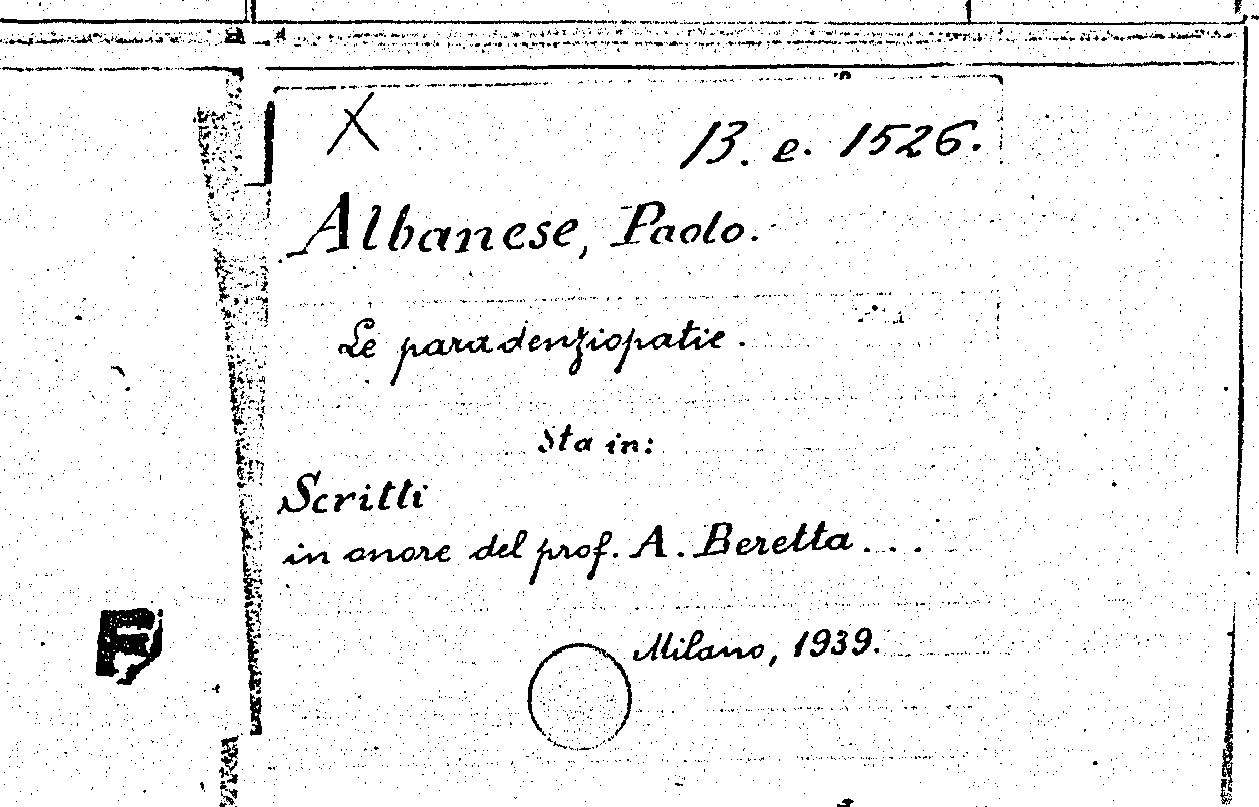 X
13. e. 1526.
Albanese, Paolo.
Le paradenziopatie.
Sta in:
Scritti
in onore del prof. A. Beretta...
Milano, 1939.